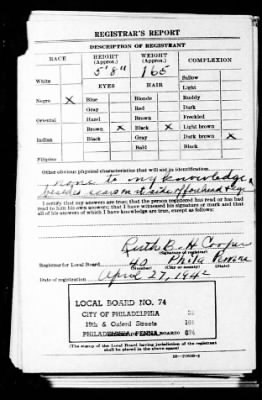 REGISTRAR'S REPORT
DESCRIPTION OF REGISTRANT
RACE HEIGHT (Approx.) WEIGHT (Approx.) COMPLEXION
5' 8" 165
White EYES HAIR Sallow
Light
Negro X Blue Blonde Ruddy
Gray Red Dark
Oriental Hazel Brown Freckled
Brown X Black X Light brown
Indian Black Gray Dark brown X
Bald Black
Filipino
Other obvious physical characteristics that will aid in identification
none to my knowledge
besides scar on rt. side of forehead
I certify that my answers are true; that the person registered has read or has had
read to him his own answers; that I have witnessed his signature or mark and that
all of his answers of which I have knowledge are true, except as follows:
Ruth B. H. Cooper
(Signature of registrar)
Registrar for Local Board 40 Phila Penna
(Number) (City or county) (State)
Date of registration April 27, 1942
LOCAL BOARD NO. 74
CITY OF PHILADELPHIA
19th & Oxford Streets
PHILADELPHIA, PENNA.
(The stamp of the Local Board having jurisdiction of the registrant
shall be placed in the above space)